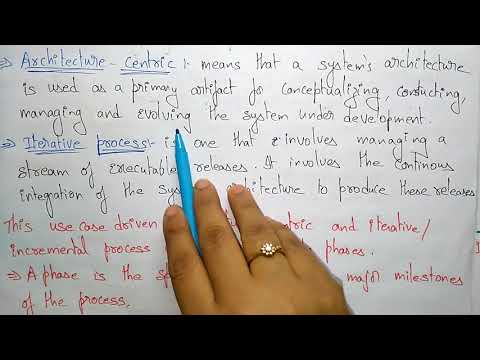 ⇒ Architecture - Centric :- means that a system's architecture
is used as a primary artifact for conceptualizing, constucting,
managing and evolving the system under development.
⇒ Iterative process:- is one that involves managing a
stream of executable releases. It involves the continous
integration of the sys chitecture to produce these releases
This use case driven ntric and iterative/
incremental process phases.
⇒ A phase is the sp major milestones
of the process.